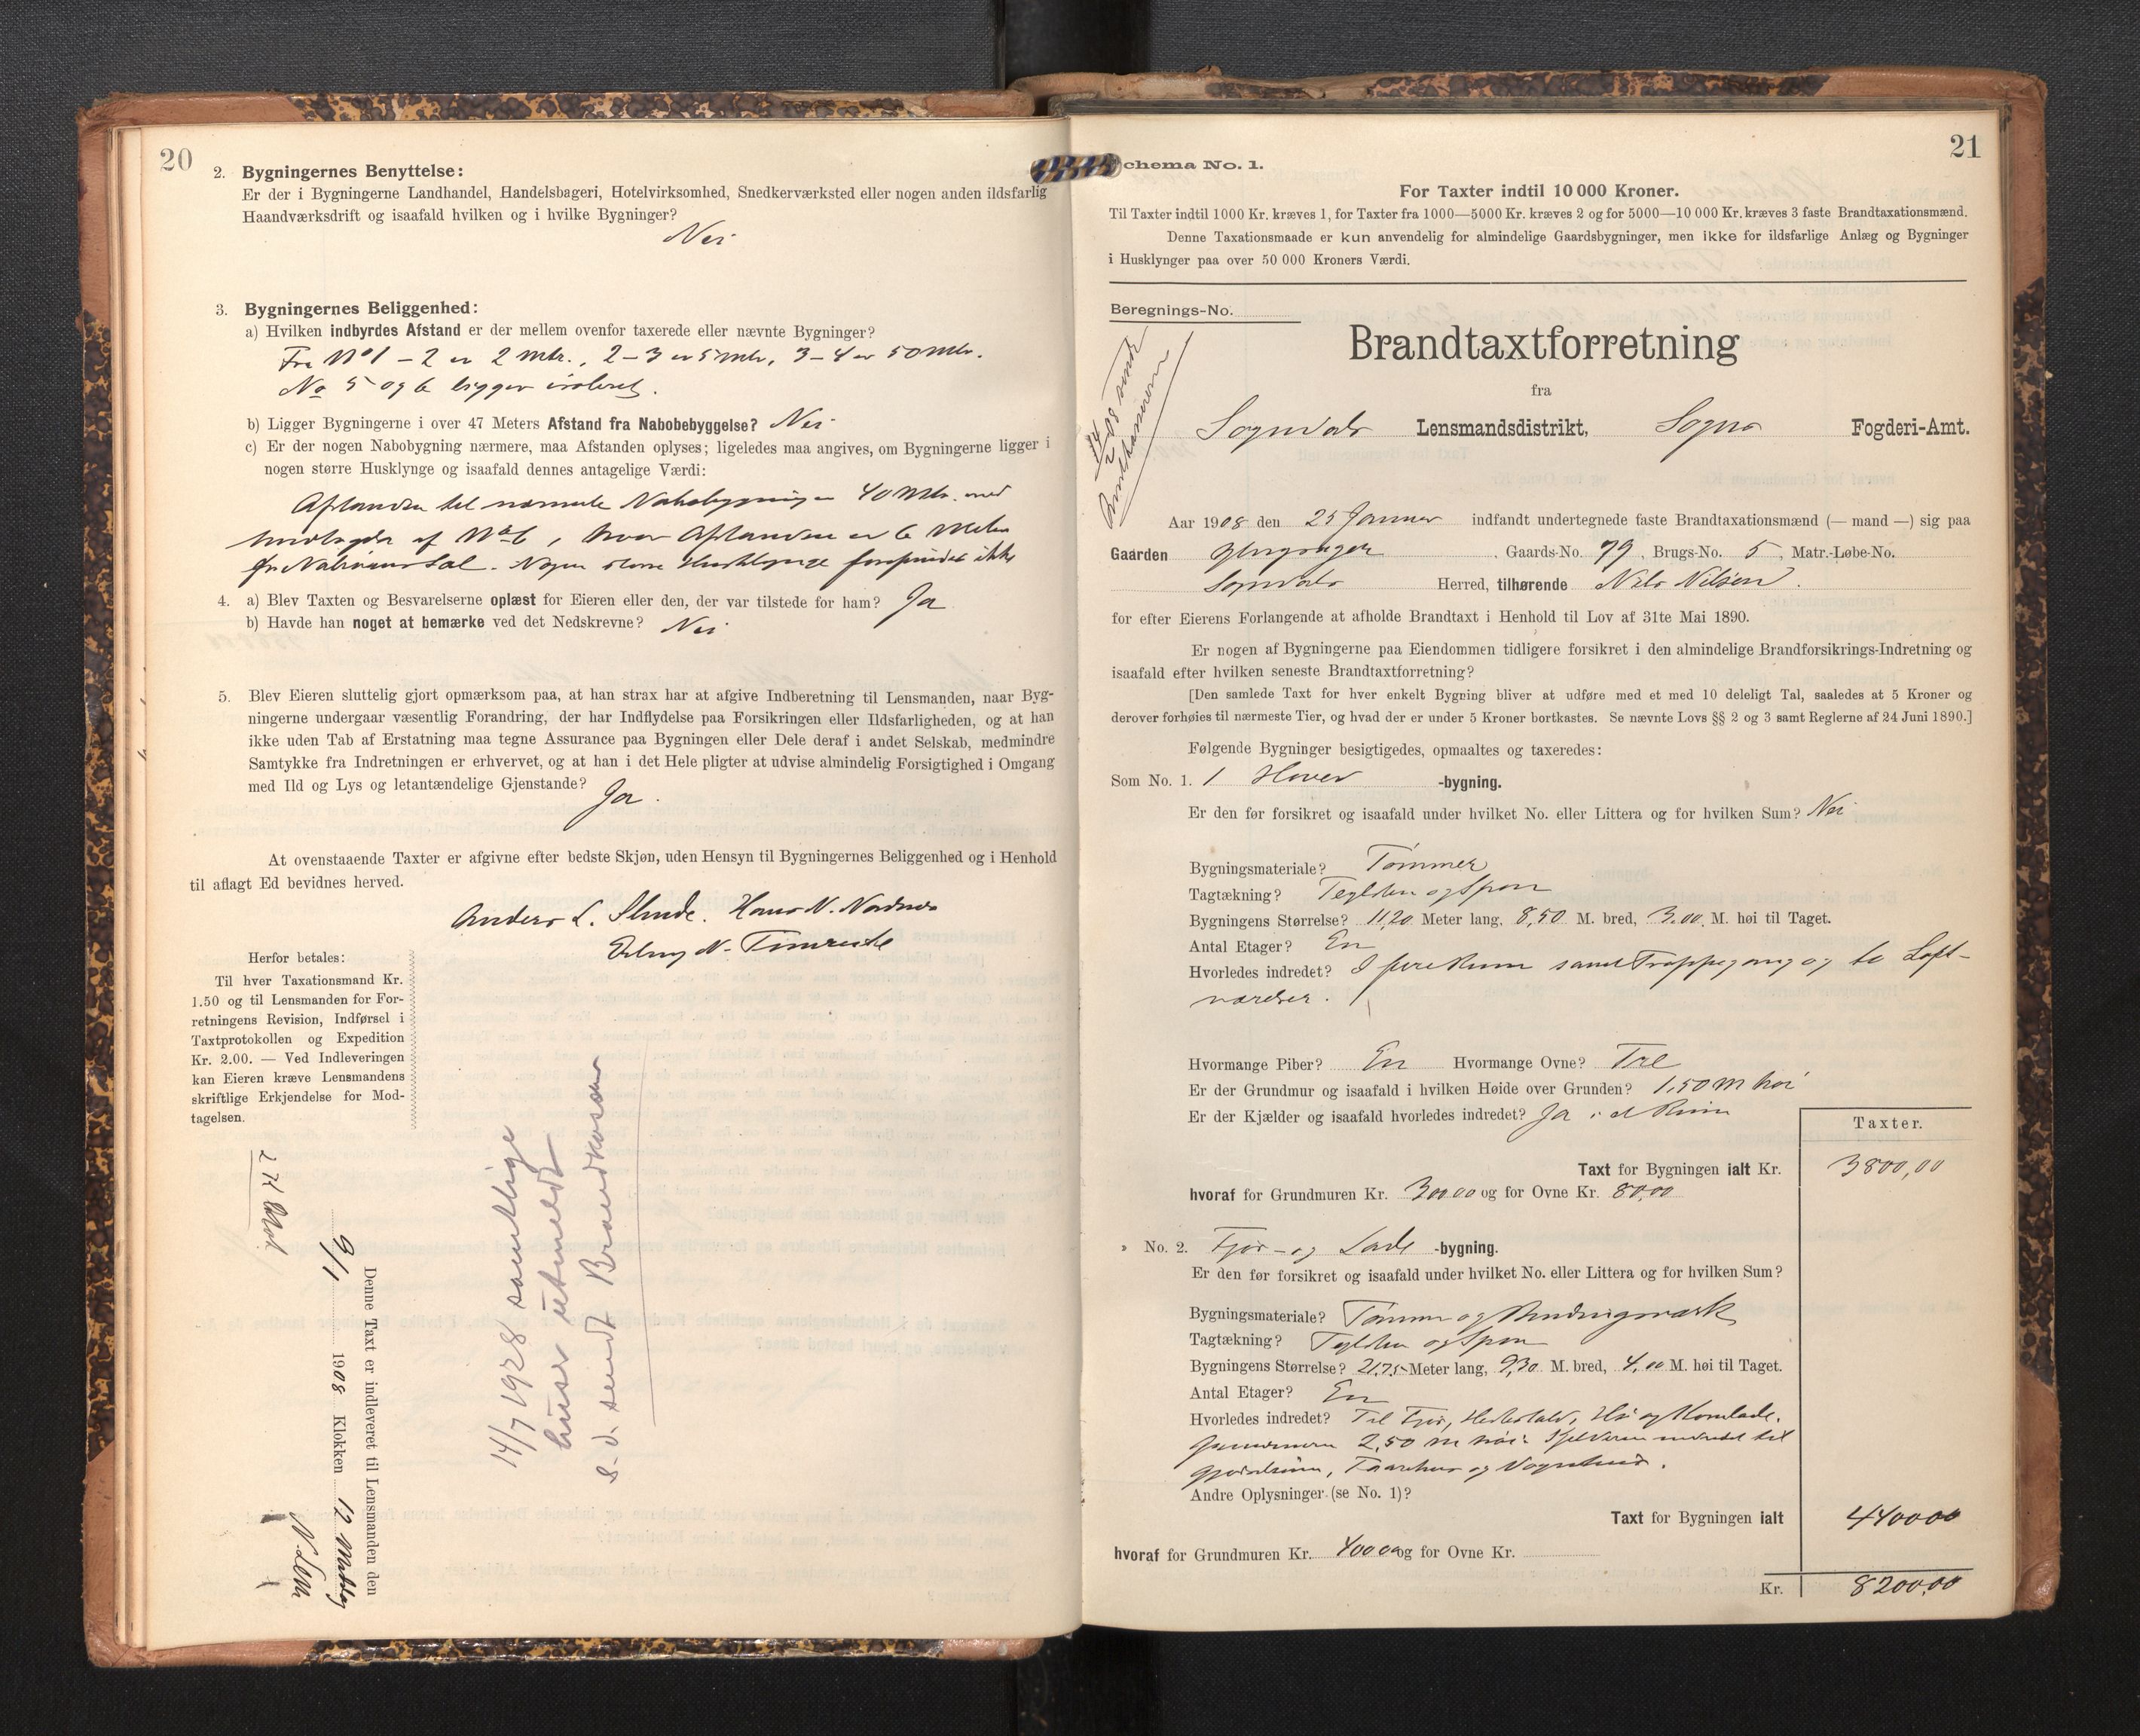 20
2. Bygningernes Benyttelse:
Er der i Bygningerne Landhandel, Handelsbageri, Hotelvirksomhed, Snedkerværksted eller nogen anden ildsfarlig
Haandværksdrift og isaafald hvilken og i hvilke Bygninger?
Nei
3. Bygningernes Beliggenhed:
a) Hvilken indbyrdes Afstand er der mellem ovenfor taxerede eller nævnte Bygninger?
Fra No 1 – 2 er 2 mtr., 2–3 er 5 mtr, 3–4 er 50 mtr.
No 5 og 6 ligger isoleret.
b) Ligger Bygningerne i over 47 Meters Afstand fra Nabobebyggelse? Nei
c) Er der nogen Nabobygning nærmere, maa Afstanden oplyses; ligeledes maa angives, om Bygningerne ligger i
nogen større Husklynge og isaafald dennes antagelige Værdi:
Afstanden til nærmeste Nabobygning er 40 Mtr. med
undtagelse af No 6, hvor Afstanden er 6 Meter
fra Naboens Sel. Nogen større Husklynge forefindes ikke
4. a) Blev Taxten og Besvarelserne oplæst for Eieren eller den, der var tilstede for ham? Ja
b) Havde han noget at bemærke ved det Nedskrevne? Nei
5. Blev Eieren sluttelig gjort opmærksom paa, at han strax har at afgive Indberetning til Lensmanden, naar Byg-
ningerne undergaar væsentlig Forandring, der har Indflydelse paa Forsikringen eller Ildsfarligheden, og at han
ikke uden Tab af Erstatning maa tegne Assurance paa Bygningen eller Dele deraf i andet Selskab, medmindre
Samtykke fra Indretningen er erhvervet, og at han i det Hele pligter at udvise almindelig Forsigtighed i Omgang
med Ild og Lys og letantændelige Gjenstande? Ja.
At ovenstaaende Taxter er afgivne efter bedste Skjøn, uden Hensyn til Bygningernes Beliggenhed og i Henhold
til aflagt Ed bevidnes herved.
Anders L. Slinde. Hans N. Nornes
Erling N.
Herfor betales:
Til hver Taxationsmand Kr.
1.50 og til Lensmanden for For-
retningens Revision, Indførsel i
Taxtprotokollen og Expedition
Kr. 2.00. — Ved Indleveringen
kan Eieren kræve Lensmandens
skriftlige Erkjendelse for Mod-
tagelsen.
Denne Taxt er indleveret til Lensmanden den
9/1 1908 Klokken 12 Middag
N. Lem
14/7 1928 samtlige
huser utmeldt
s. d. sendt Brandkassen
21
Schema No. 1.
For Taxter indtil 10 000 Kroner.
Til Taxter indtil 1000 Kr. kræves 1, for Taxter fra 1000—5000 Kr. kræves 2 og for 5000—10 000 Kr. kræves 3 faste Brandtaxationsmænd.
Denne Taxationsmaade er kun anvendelig for almindelige Gaardsbygninger, men ikke for ildsfarlige Anlæg og Bygninger
i Husklynger paa over 50 000 Kroners Værdi.
Beregnings-No.
14/2 08 sendt
Brandkasseren
Brandtaxtforretning
fra
Sogndals Lensmandsdistrikt, Sogns Fogderi-Amt.
Aar 1908 den 25 Januar indfandt undertegnede faste Brandtaxationsmænd (— mand —) sig paa
Gaarden , Gaards-No. 79, Brugs-No. 5, Matr.-Løbe-No.
Sogndals Herred, tilhørende Nils Nilsen.
for efter Eierens Forlangende at afholde Brandtaxt i Henhold til Lov af 31te Mai 1890.
Er nogen af Bygningerne paa Eiendommen tidligere forsikret i den almindelige Brandforsikrings-Indretning og
isaafald efter hvilken seneste Brandtaxtforretning?
[Den samlede Taxt for hver enkelt Bygning bliver at udføre med et med 10 deleligt Tal, saaledes at 5 Kroner og
derover forhøies til nærmeste Tier, og hvad der er under 5 Kroner bortkastes. Se nævnte Lovs §§ 2 og 3 samt Reglerne af 24 Juni 1890.]
Følgende Bygninger besigtigedes, opmaaltes og taxeredes:
Som No. 1. 1 Hoved -bygning.
Er den før forsikret og isaafald under hvilket No. eller Littera og for hvilken Sum? Nei
Bygningsmateriale? Tømmer
Tagtækning? Teglsten og Spon
Bygningens Størrelse? 11,20 Meter lang, 8,50 M. bred, 3.00. M. høi til Taget.
Antal Etager? En
Hvorledes indredet? I fire Rum samt Trappegang og to Loft-
værelser.
Hvormange Piber? En Hvormange Ovne? Tre
Er der Grundmur og isaafald i hvilken Høide over Grunden? 1.50 m høi
Er der Kjælder og isaafald hvorledes indredet? Ja i et Rum
Taxter.
Taxt for Bygningen ialt Kr. 3800,00
hvoraf for Grundmuren Kr. 300.00 og for Ovne Kr. 80.00
» No. 2. Fjøs- og Lade -bygning.
Er den før forsikret og isaafald under hvilket No. eller Littera og for hvilken Sum?
Bygningsmateriale? Tømmer og Bindingsværk
Tagtækning? Teglsten og Spon
Bygningens Størrelse? 21,75 Meter lang, 9,30 M. bred, 4,00 M. høi til Taget.
Antal Etager? En
Hvorledes indredet? Til Fjøs, Hestestald, Hø og Kornlade.
Grundmuren 2,50 m høi. Kjelderen indredet til
Gjødselrum, Faarehus og Vognskur.
Andre Oplysninger (se No. 1)?
Taxt for Bygningen ialt 4400.00
hvoraf for Grundmuren Kr. 400.00 og for Ovne Kr.
Kr. 8200,00